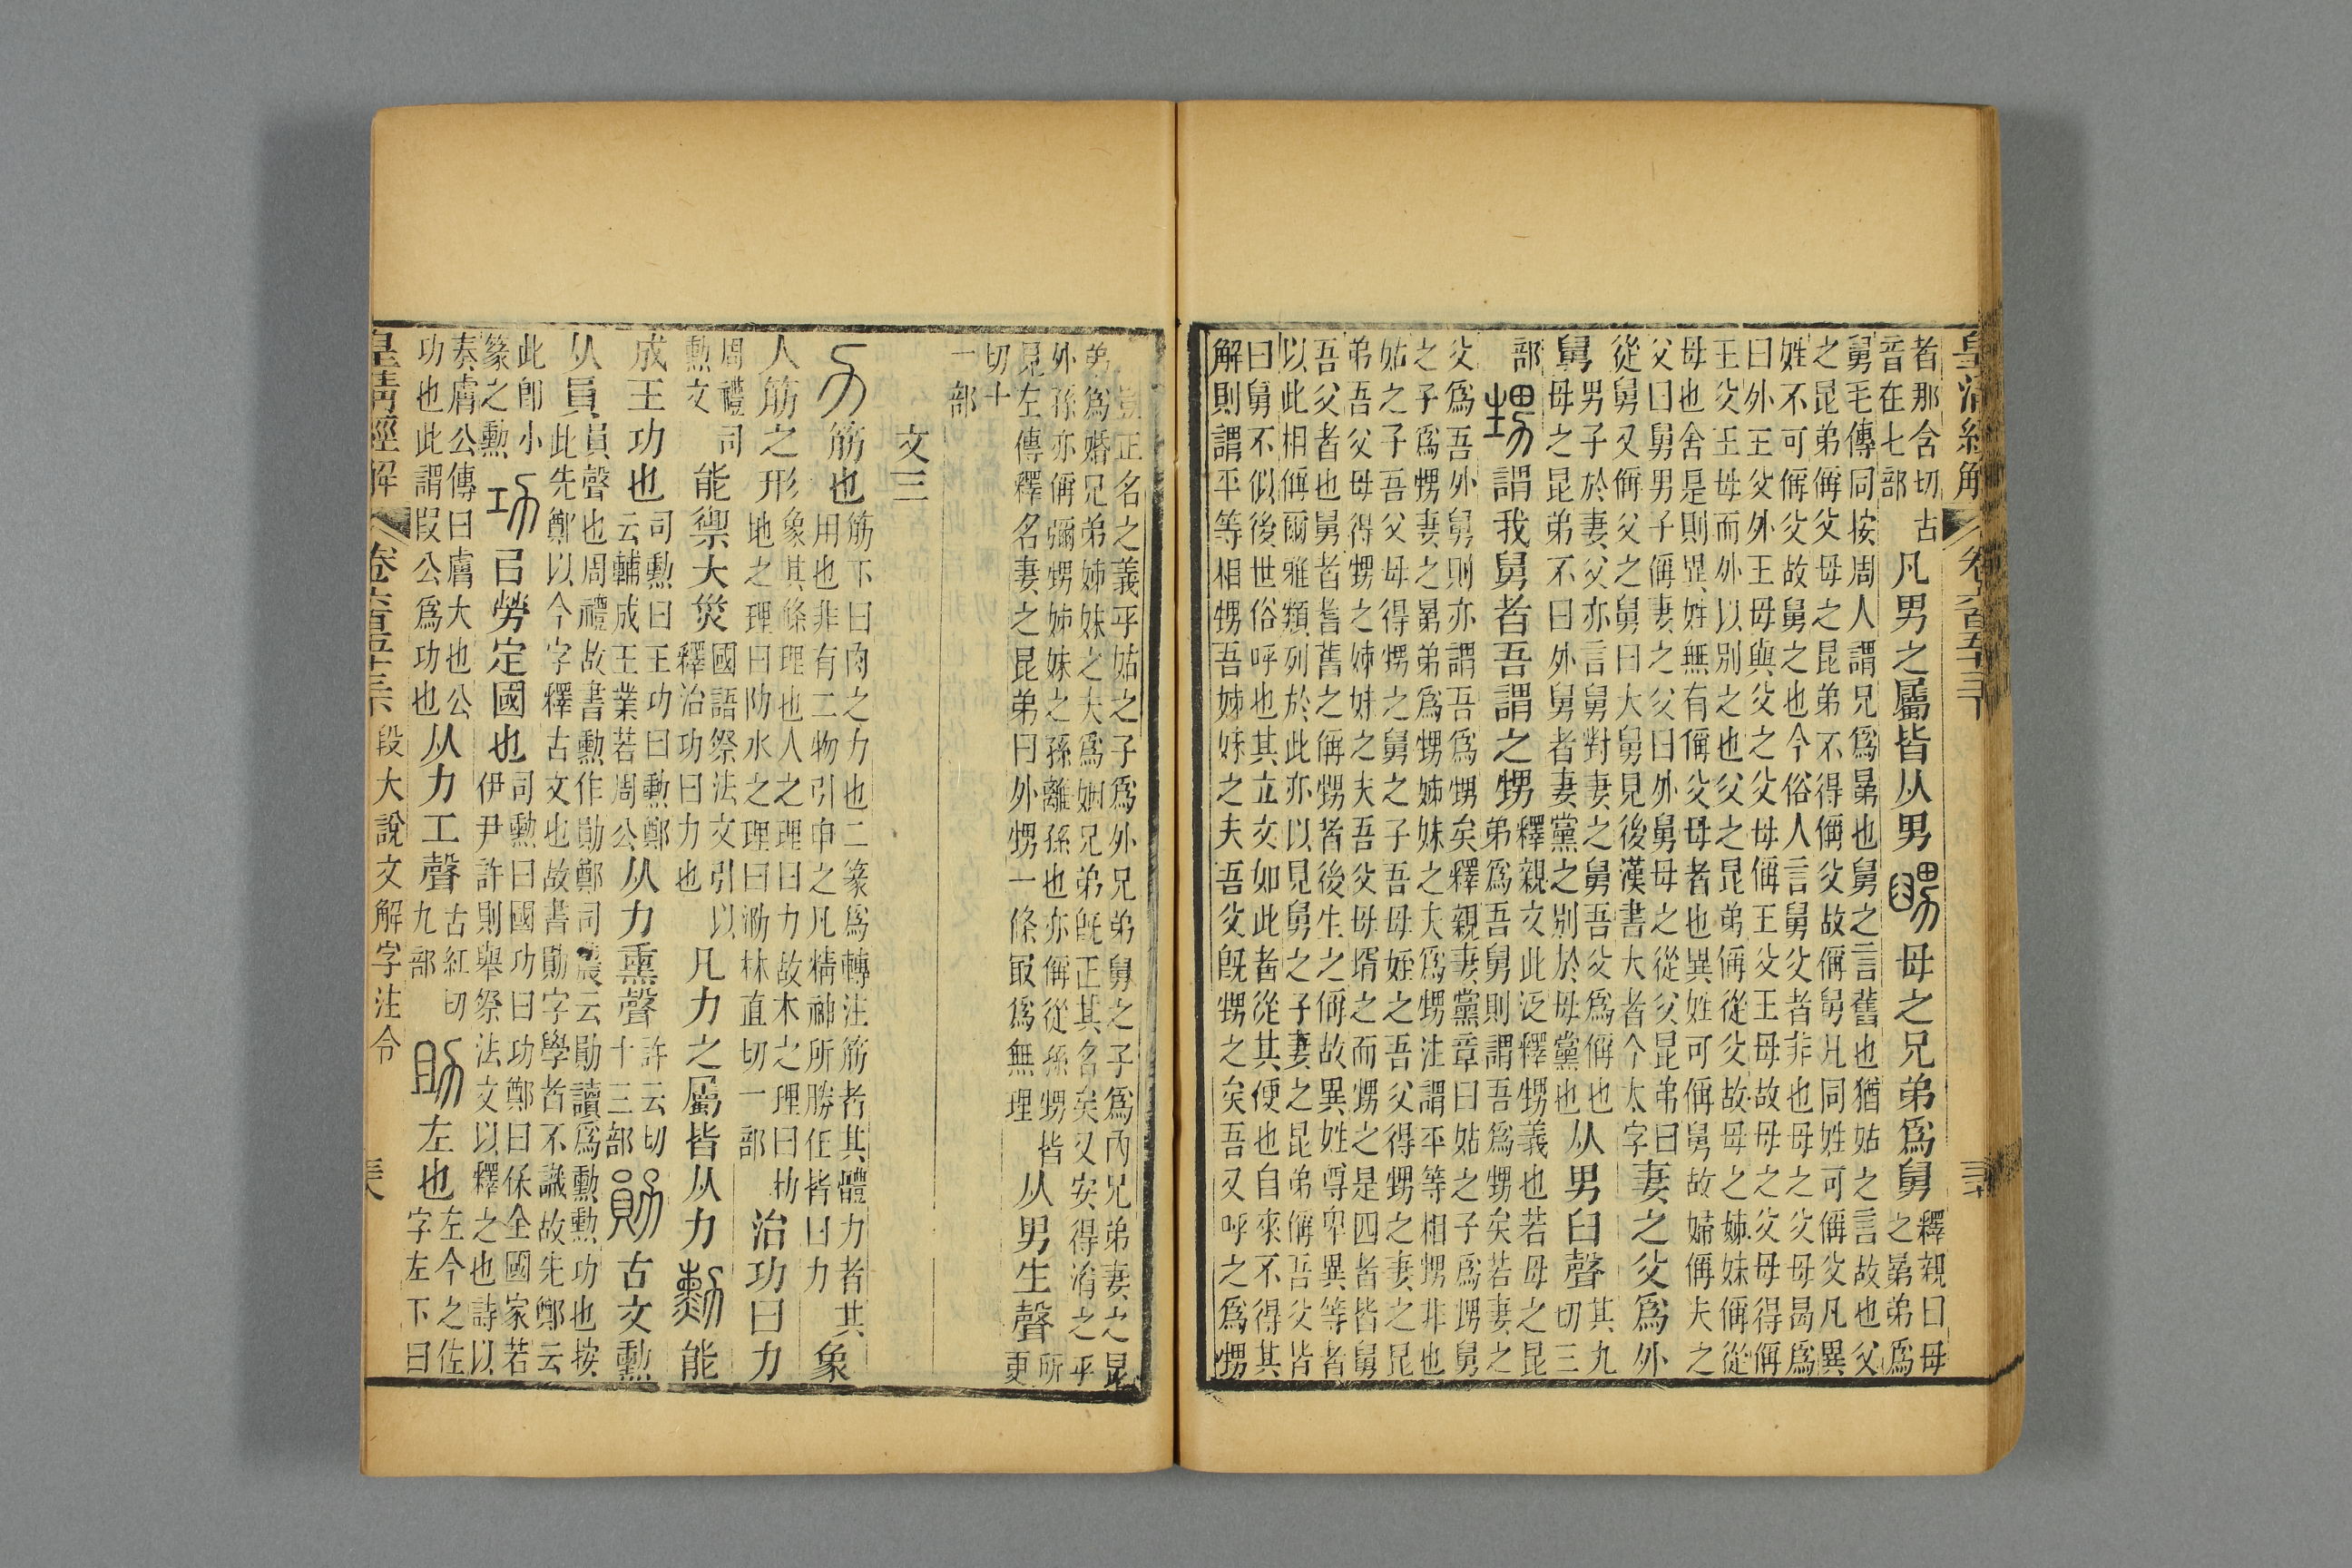 皇清經解 卷六百五十三下
者那含切古
音在七部 凡男之屬皆从男 舅 母之兄弟爲舅 釋親曰母
之晜弟爲
舅毛傳同按周人謂兄爲晜也舅之言舊也猶姑之言故也父
之昆弟偁父母之昆弟不得偁父故偁舅凡同姓可偁父凡異
姓不可偁父故舅之也今俗人言舅父者非也母之父母曷爲
曰外王父外王母與父之父母偁王父王母故母之父母得偁
王父王母而外以別之也父之昆弟偁從父故母之姊妹偁從
母也舍是則異姓無有偁父母者也異姓可偁舅故婦偁夫之
父曰舅男子偁妻之父曰外舅母之從父昆弟曰
從舅又偁父之舅曰大舅見後漢書大者今太字 妻之父爲外
舅 男子於妻父亦言舅對妻之舅吾父爲偁也
母之昆弟不曰外舅者妻黨之別於母黨也 从男臼聲 其九
切三
部 甥 謂我舅者吾謂之甥 釋親文此泛釋甥義也若母之昆
弟爲吾舅則謂吾爲甥矣若妻之
父爲吾外舅則亦謂吾爲甥矣釋親妻黨章曰姑之子爲甥舅
之子爲甥妻之晜弟爲甥姊妹之夫爲甥注謂平等相甥非也
姑之子吾父母得甥之舅之子吾母姪之吾父得甥之妻之昆
弟吾父母得甥之姊妹之夫吾父母壻之而甥之是四者皆舅
吾父者也舅者耆舊之偁甥者後生之偁故異姓尊卑異等者
以此相偁爾雅類列於此亦以見舅之子妻之昆弟偁吾父皆
曰舅不似後世俗呼也其立文如此者從其便也自來不得其
解則謂平等相甥吾姊妹之夫吾父旣甥之矣吾又呼之爲甥
豈正名之義乎姑之子爲外兄弟舅之子爲內兄弟妻之昆
弟爲婚兄弟姊妹之夫爲姻兄弟旣正其名矣又安得淆之乎
外孫亦偁彌甥姊妹之孫離孫也亦偁從孫甥皆
見左傳釋名妻之昆弟曰外甥一條冣爲無理 从男生聲 所
更
切十
一部
文三
力 筋也 筋下曰肉之力也二篆爲轉注筋者其體力者其
用也非有二物引申之凡精神所勝任皆曰力 象
人筋之形 象其條理也人之理曰力故木之理曰朸
地之理曰阞水之理曰泐林直切一部 治功曰力
周禮司
勳文 能禦大災 國語祭法文引以
釋治功曰力也 凡力之屬皆从力 勳 能
成王功也 司勳曰王功曰勳鄭
云輔成王業若周公 从力熏聲 許云切
十三部 勛 古文勳
从員 員聲也周禮故書勳作勛鄭司農云勛讀爲勳勳功也按
此先鄭以今字釋古文也故書勛字學者不識故先鄭云
此卽小
篆之勳 功 㠯勞定國也 司勳曰國功曰功鄭曰保全國家若
伊尹許則舉祭法文以釋之也詩以
奏膚公傳曰膚大也公
功也此謂叚公爲功也 从力工聲 古紅切
九部 助 左也 左今之佐
字左下曰
皇清經解 卷六百五十三下 段大說文解字注令